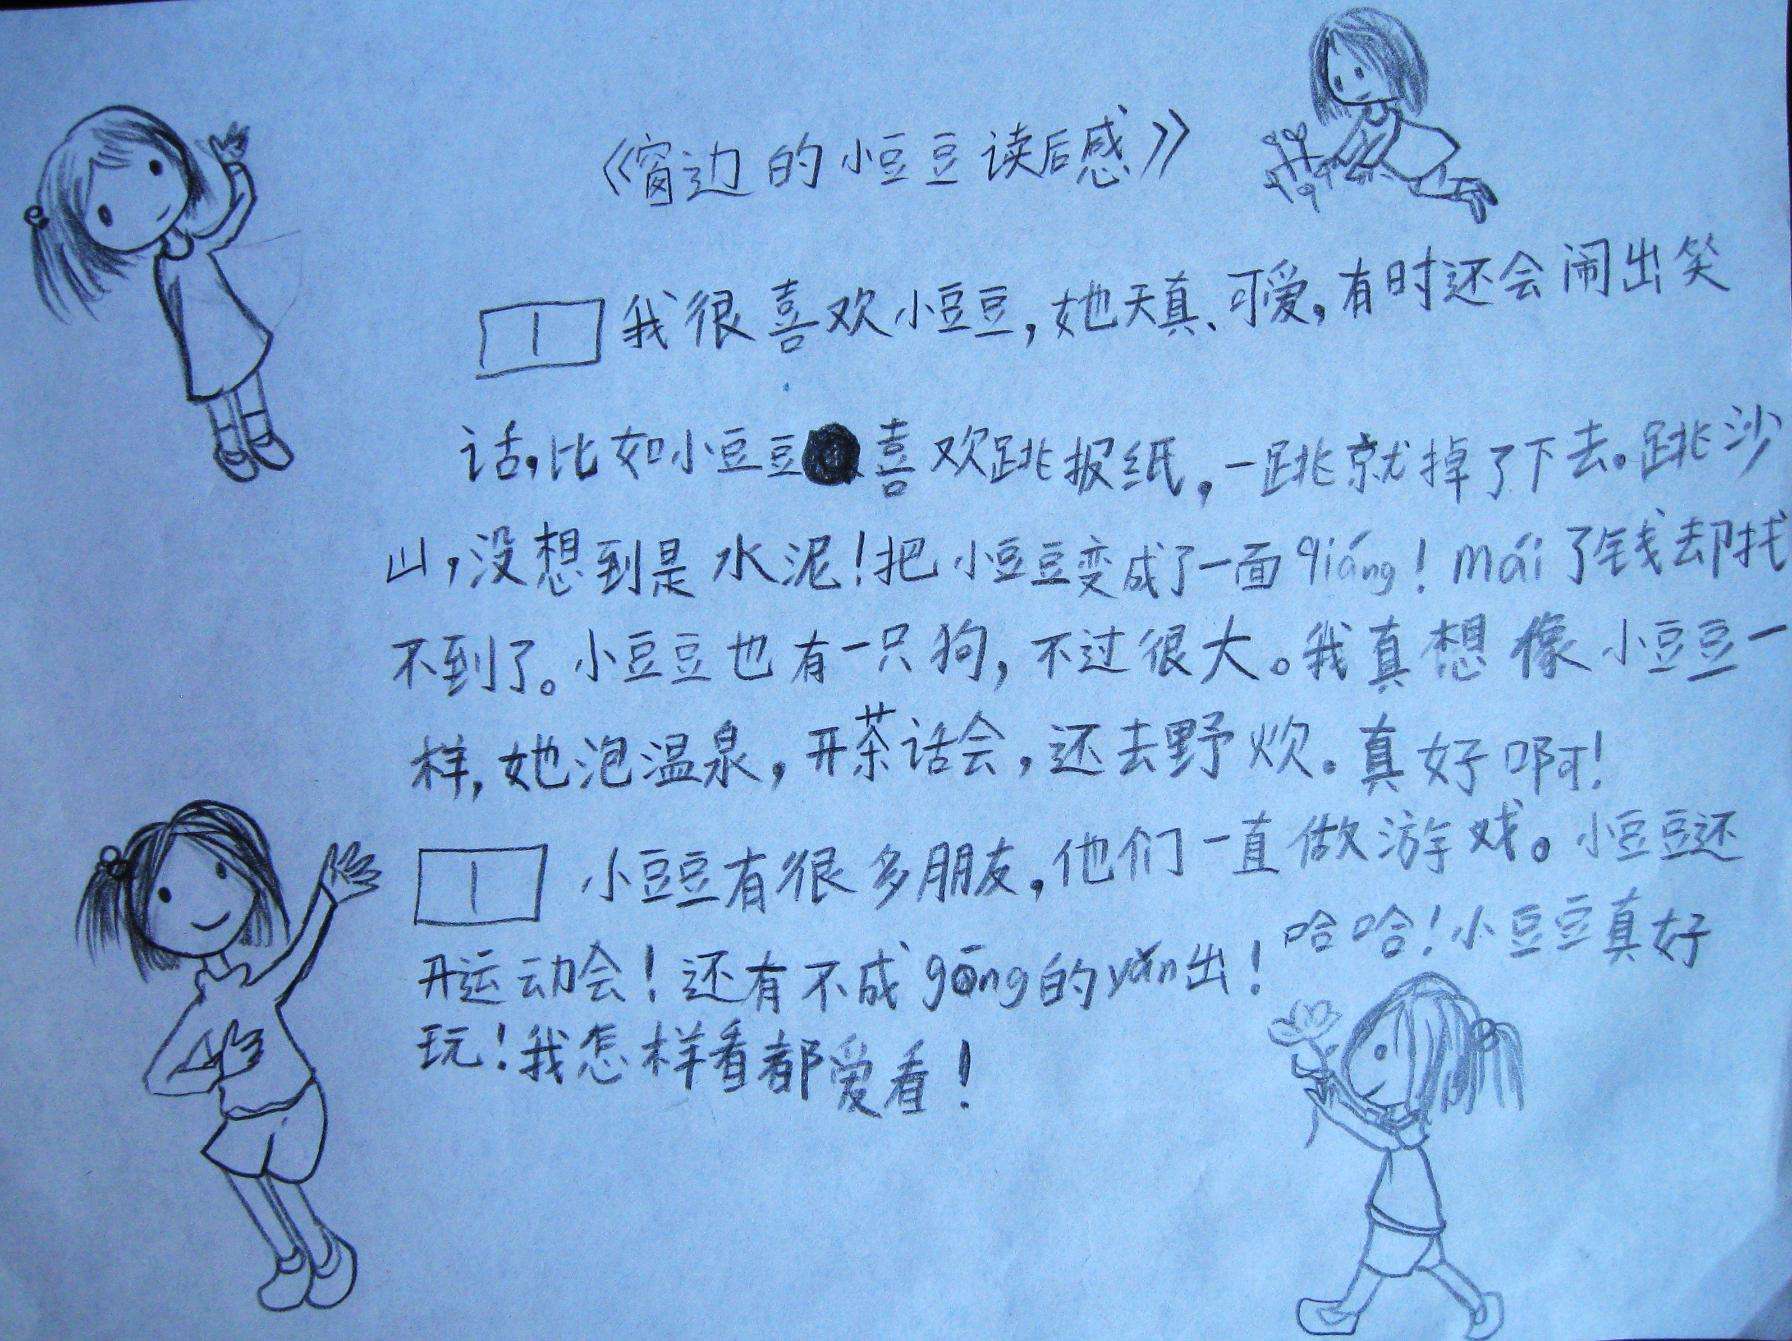 《窗边的小豆豆读后感》
1 我很喜欢小豆豆,她天真、可爱,有时还会闹出笑
话,比如小豆豆喜欢跳报纸,一跳就掉了下去。跳沙
山,没想到是水泥!把小豆豆变成了一面qiáng!mái了钱却找
不到了。小豆豆也有一只狗,不过很大。我真想像小豆豆一
样,她泡温泉,开茶话会,还去野炊。真好啊!
1 小豆豆有很多朋友,他们一直做游戏。小豆豆还
开运动会!还有不成gōng的yǎn出!哈哈!小豆豆真好
玩!我怎样看都爱看!